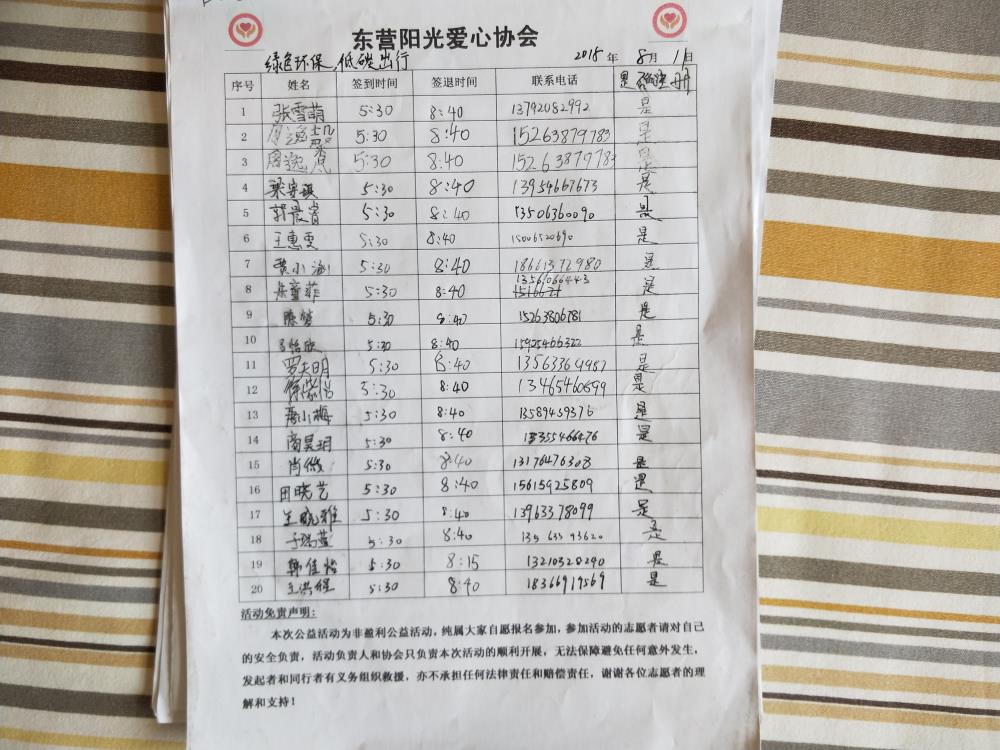 东营阳光爱心协会
绿色环保,低碳出行 2015年8月1日
序号 姓名 签到时间 签退时间 联系电话 是否注册
1 张雪萌 5:30 8:40 13792082992 是
2 5:30 8:40 15263879783 是
3 5:30 8:40 15263879783 是
4 5:30 8:40 13954667673 是
5 5:30 8:40 13506360090 是
6 王惠雯 5:30 8:40 15006520690 是
7 5:30 8:40 18661372980 是
8 5:30 8:40 13561066443 是
9 陈梦 5:30 8:40 15263806781 是
10 5:30 8:40 15925466322 是
11 罗天明 5:30 8:40 是
12 5:30 8:40 13465460899 是
13 5:30 8:40 13589459376 是
14 商昊玥 5:30 8:40 13355466476 是
15 肖薇 5:30 8:40 13176476308 是
16 田晓艺 5:30 8:40 15615925809 是
17 王晓雅 5:30 8:40 13963378099 是
18 于瑞萱 5:30 8:40 是
19 韩佳怡 5:30 8:15 13210328290 是
20 王洪程 5:30 8:40 18366919569 是
活动免责声明:
本次公益活动为非盈利公益活动,纯属大家自愿报名参加,参加活动的志愿者请对自己
的安全负责,活动负责人和协会只负责本次活动的顺利开展,无法保障避免任何意外发生,
发起者和同行者有义务组织救援,亦不承担任何法律责任和赔偿责任,谢谢各位志愿者的理
解和支持!